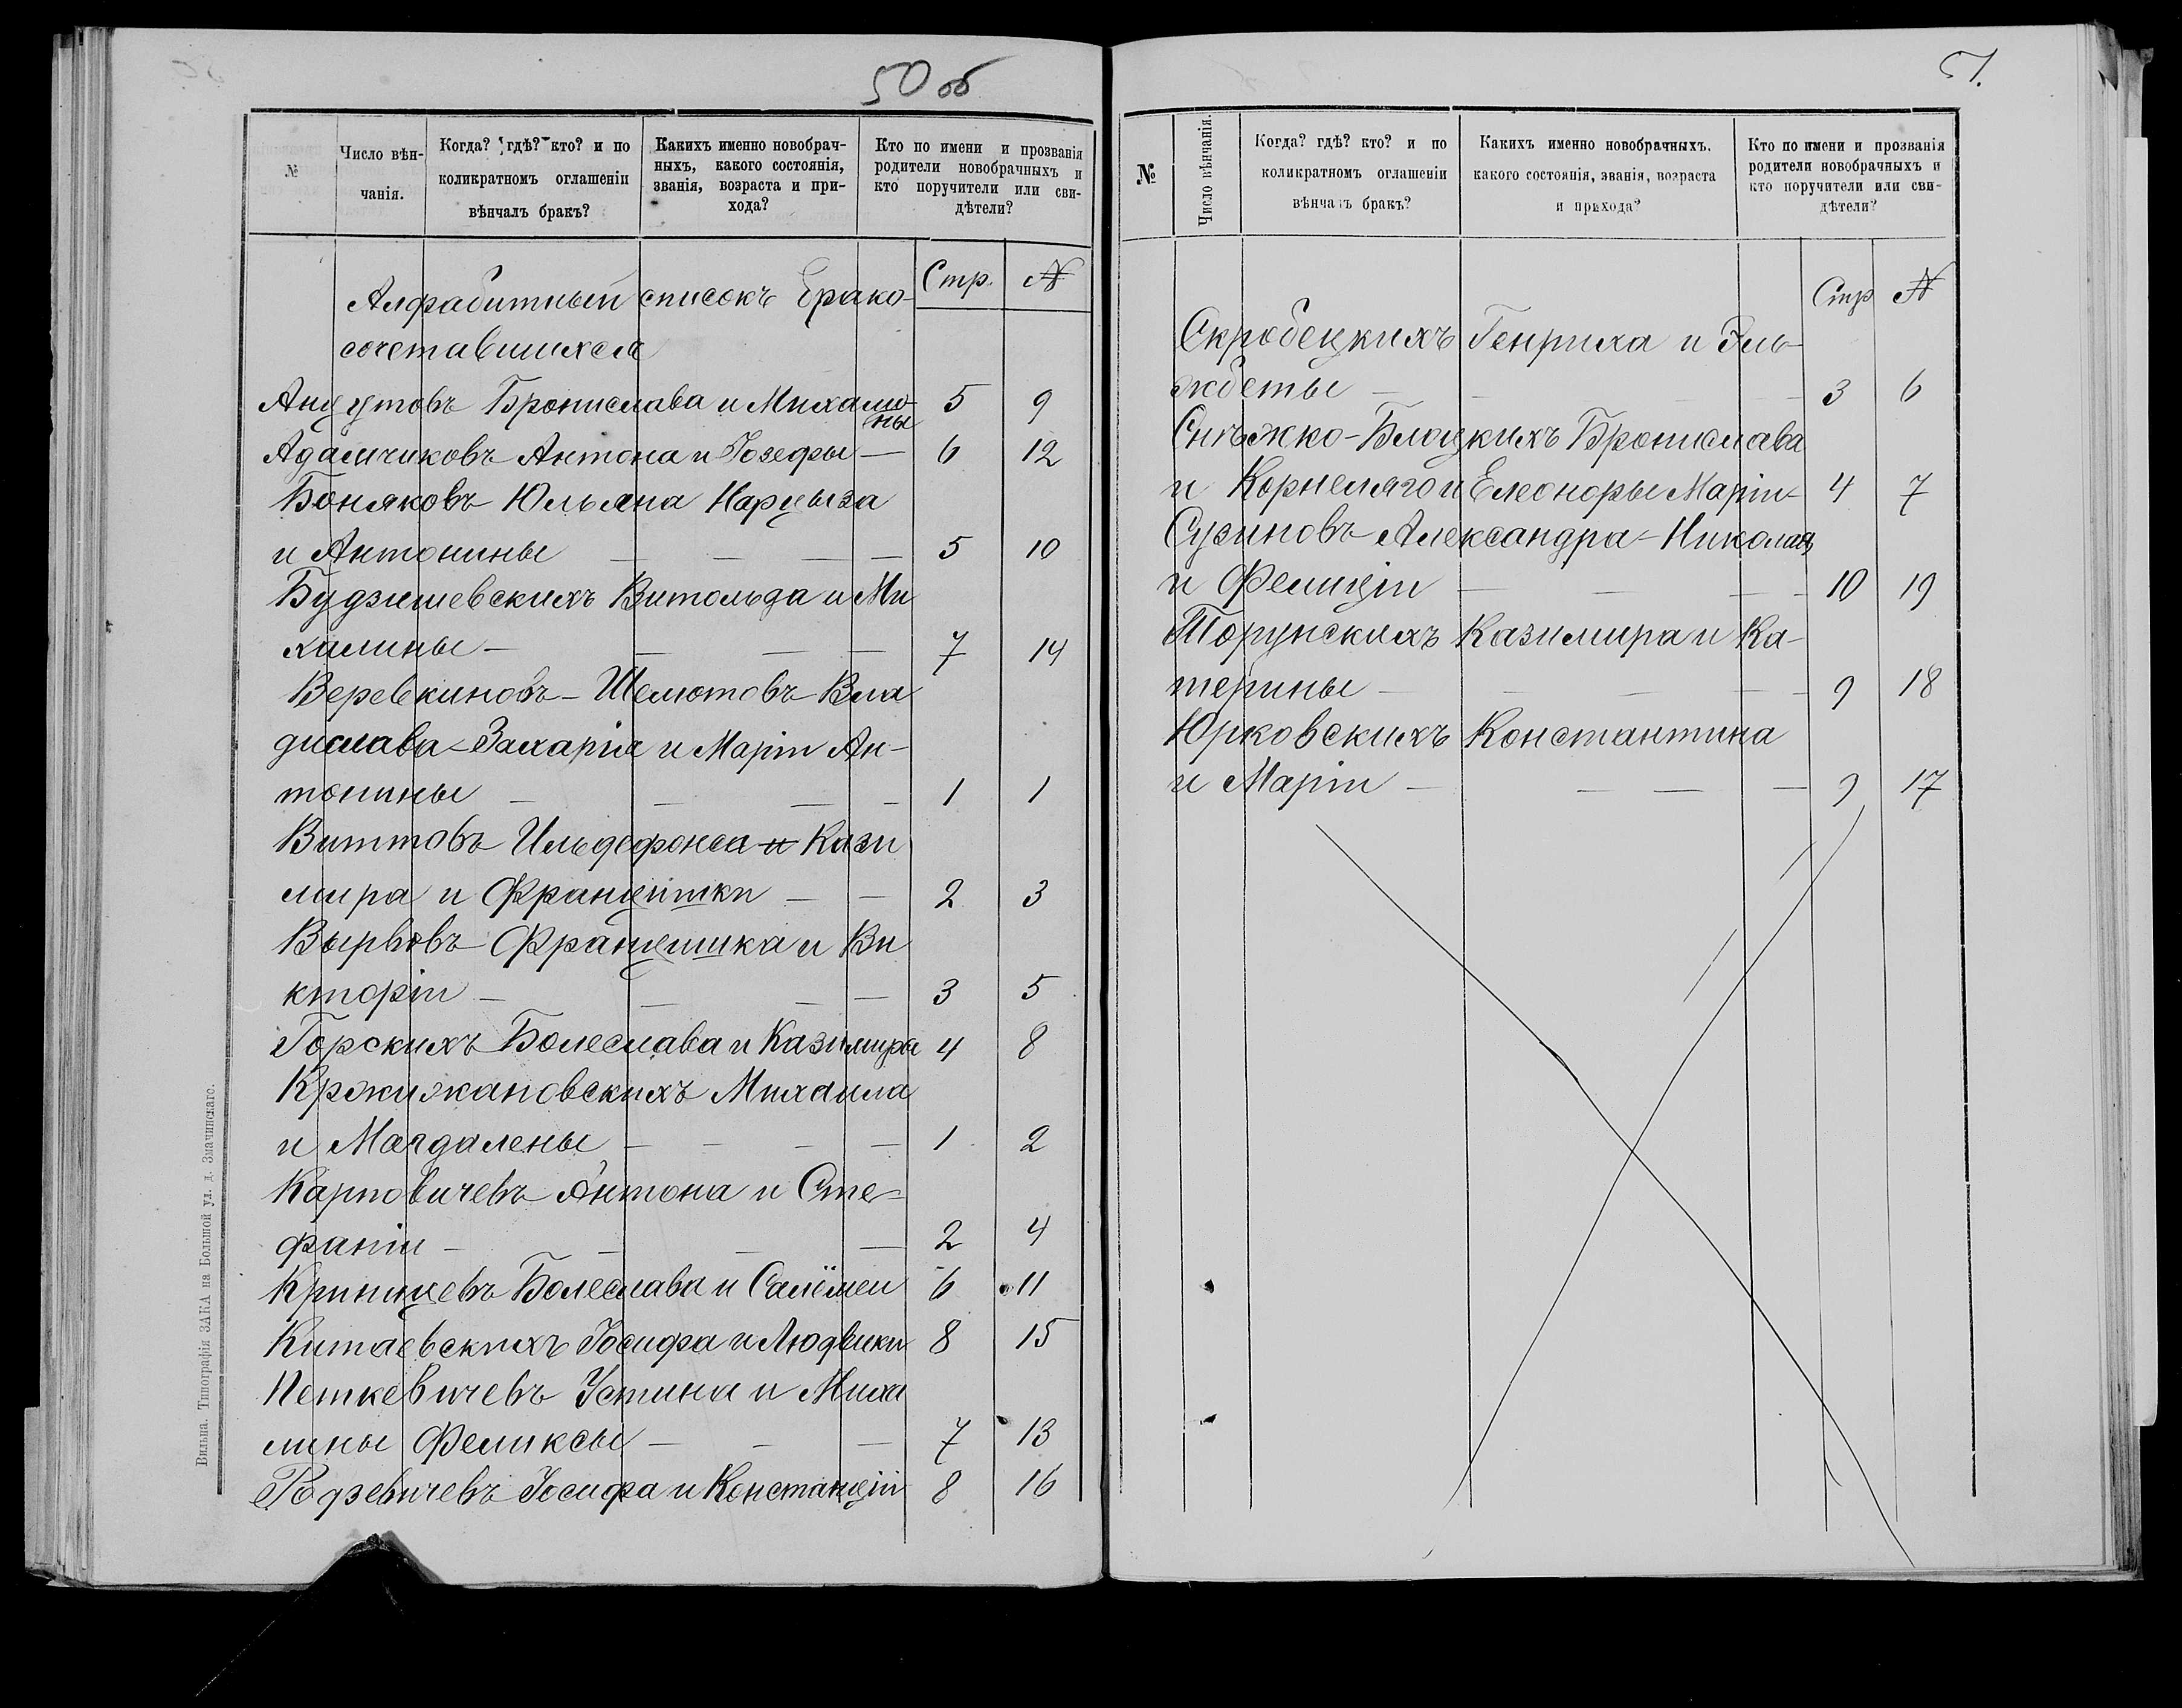 50 об
№
Число вѣн-
чанія.
Когда? гдѣ? кто? и по
коликратномъ оглашеніи
вѣнчалъ бракъ?
Какихъ именно новобрач-
ныхъ, какого состоянія,
званія, возраста и при-
хода?
Кто по имени и прозванія
родители новобрачныхъ и
кто поручители или сви-
дѣтели?
Алфабитный списокъ брако- Стр. №
сочетавшихся
Анцутовъ Бронислава и Михали-ны 5 9
Адамчиковъ Антона и Іозефы — 6 12
Боняковъ Юльяна Нарцыза
и Антонины — — — — 5 10
Будзишевскихъ Витольда и Ми
халины — — — — 7 14
Веревкиновъ-Шелютовъ Вла
дислава-Захарія и Маріи Ан-
тонины — — — — 1 1
Виттовъ Ильдефонса и Кази
мира и Францишки — — 2 3
Вырвовъ Францишка и Ви
кторіи — — — — 3 5
Горскихъ Болеслава и Казимиры 4 8
Кржижановскихъ Михаила
и Магдалены — — — — 1 2
Карповичевъ Антона и Сте-
фаніи — — — — 2 4
Криницевъ Болеслава и Салёмеи 6 11
Китаевскихъ Іосифа и Людвики 8 15
Петкевичевъ Устина и Миха
лины Феликсы — — — 7 13
Родзевичевъ Іосифа и Констанціи 8 16
Вильна. Типографія ЗАКА на Большой ул. д. Змачинскаго.
51.
№
Число вѣнчанія.
Когда? гдѣ? кто? и по
коликратномъ оглашеніи
вѣнчалъ бракъ?
Какихъ именно новобрачныхъ.
какого состоянія, званія, возраста
и прихода?
Кто по имени и прозванія
родители новобрачныхъ и
кто поручители или сви-
дѣтели?
Стр №
Скробецкихъ Генриха и Эль-
жбеты — — — — 3 6
Снѣжко-Блоцкихъ Бронислава
и Корнеляго и Елеоноры Маріи- 4 7
Сузиновъ Александра-Николая
и Фелиціи — — — — 10 19
Торунскихъ Казимира и Ка-
терины — — — — 9 18
Юрковскихъ Константина
и Маріи — — — — 9 17